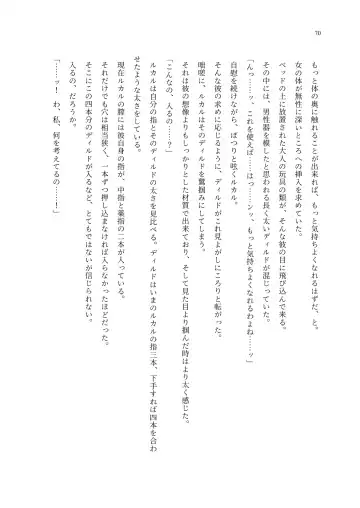 70
もっと体の奥に触れることが出来れば、もっと気持ちよくなれるはずだ、と。
女の体が無性に深いところへの挿入を求めていた。
ベッドの上に放置された大人の玩具の類が、そんな彼の目に飛び込んで来る。
その中には、男性器を模したと思われる長く太いディルドが混じっていた。
「んっ……ッ、これを使えば……はっ……ンッ、もっと気持ちよくなれるわよね……ッ」
自慰を続けながら、ぽつりと呟くルカル。
そんな彼の求めに応じるように、ディルドがこれ見よがしにころりと転がった。
咄嗟に、ルカルはそのディルドを鷲掴みにしてしまう。
それは彼の想像よりもしっかりとした材質で出来ており、そして見た目より掴んだ時はより太く感じた。
「こんなの、入るの……？」
ルカルは自分の指とそのディルドの太さを見比べる。ディルドはいまのルカルの指三本、下手すれば四本を合わ
せたような太さをしている。
現在ルカルの膣には彼自身の指が、中指と薬指の二本が入っている。
それだけでも穴は相当狭く、一本ずつ押し込まなければ入らなかったほどだった。
そこにこの四本分のディルドが入るなど、とてもではないが信じられない。
入るの、だろうか。
「……ッ！　わ、私、何を考えてるの……！」